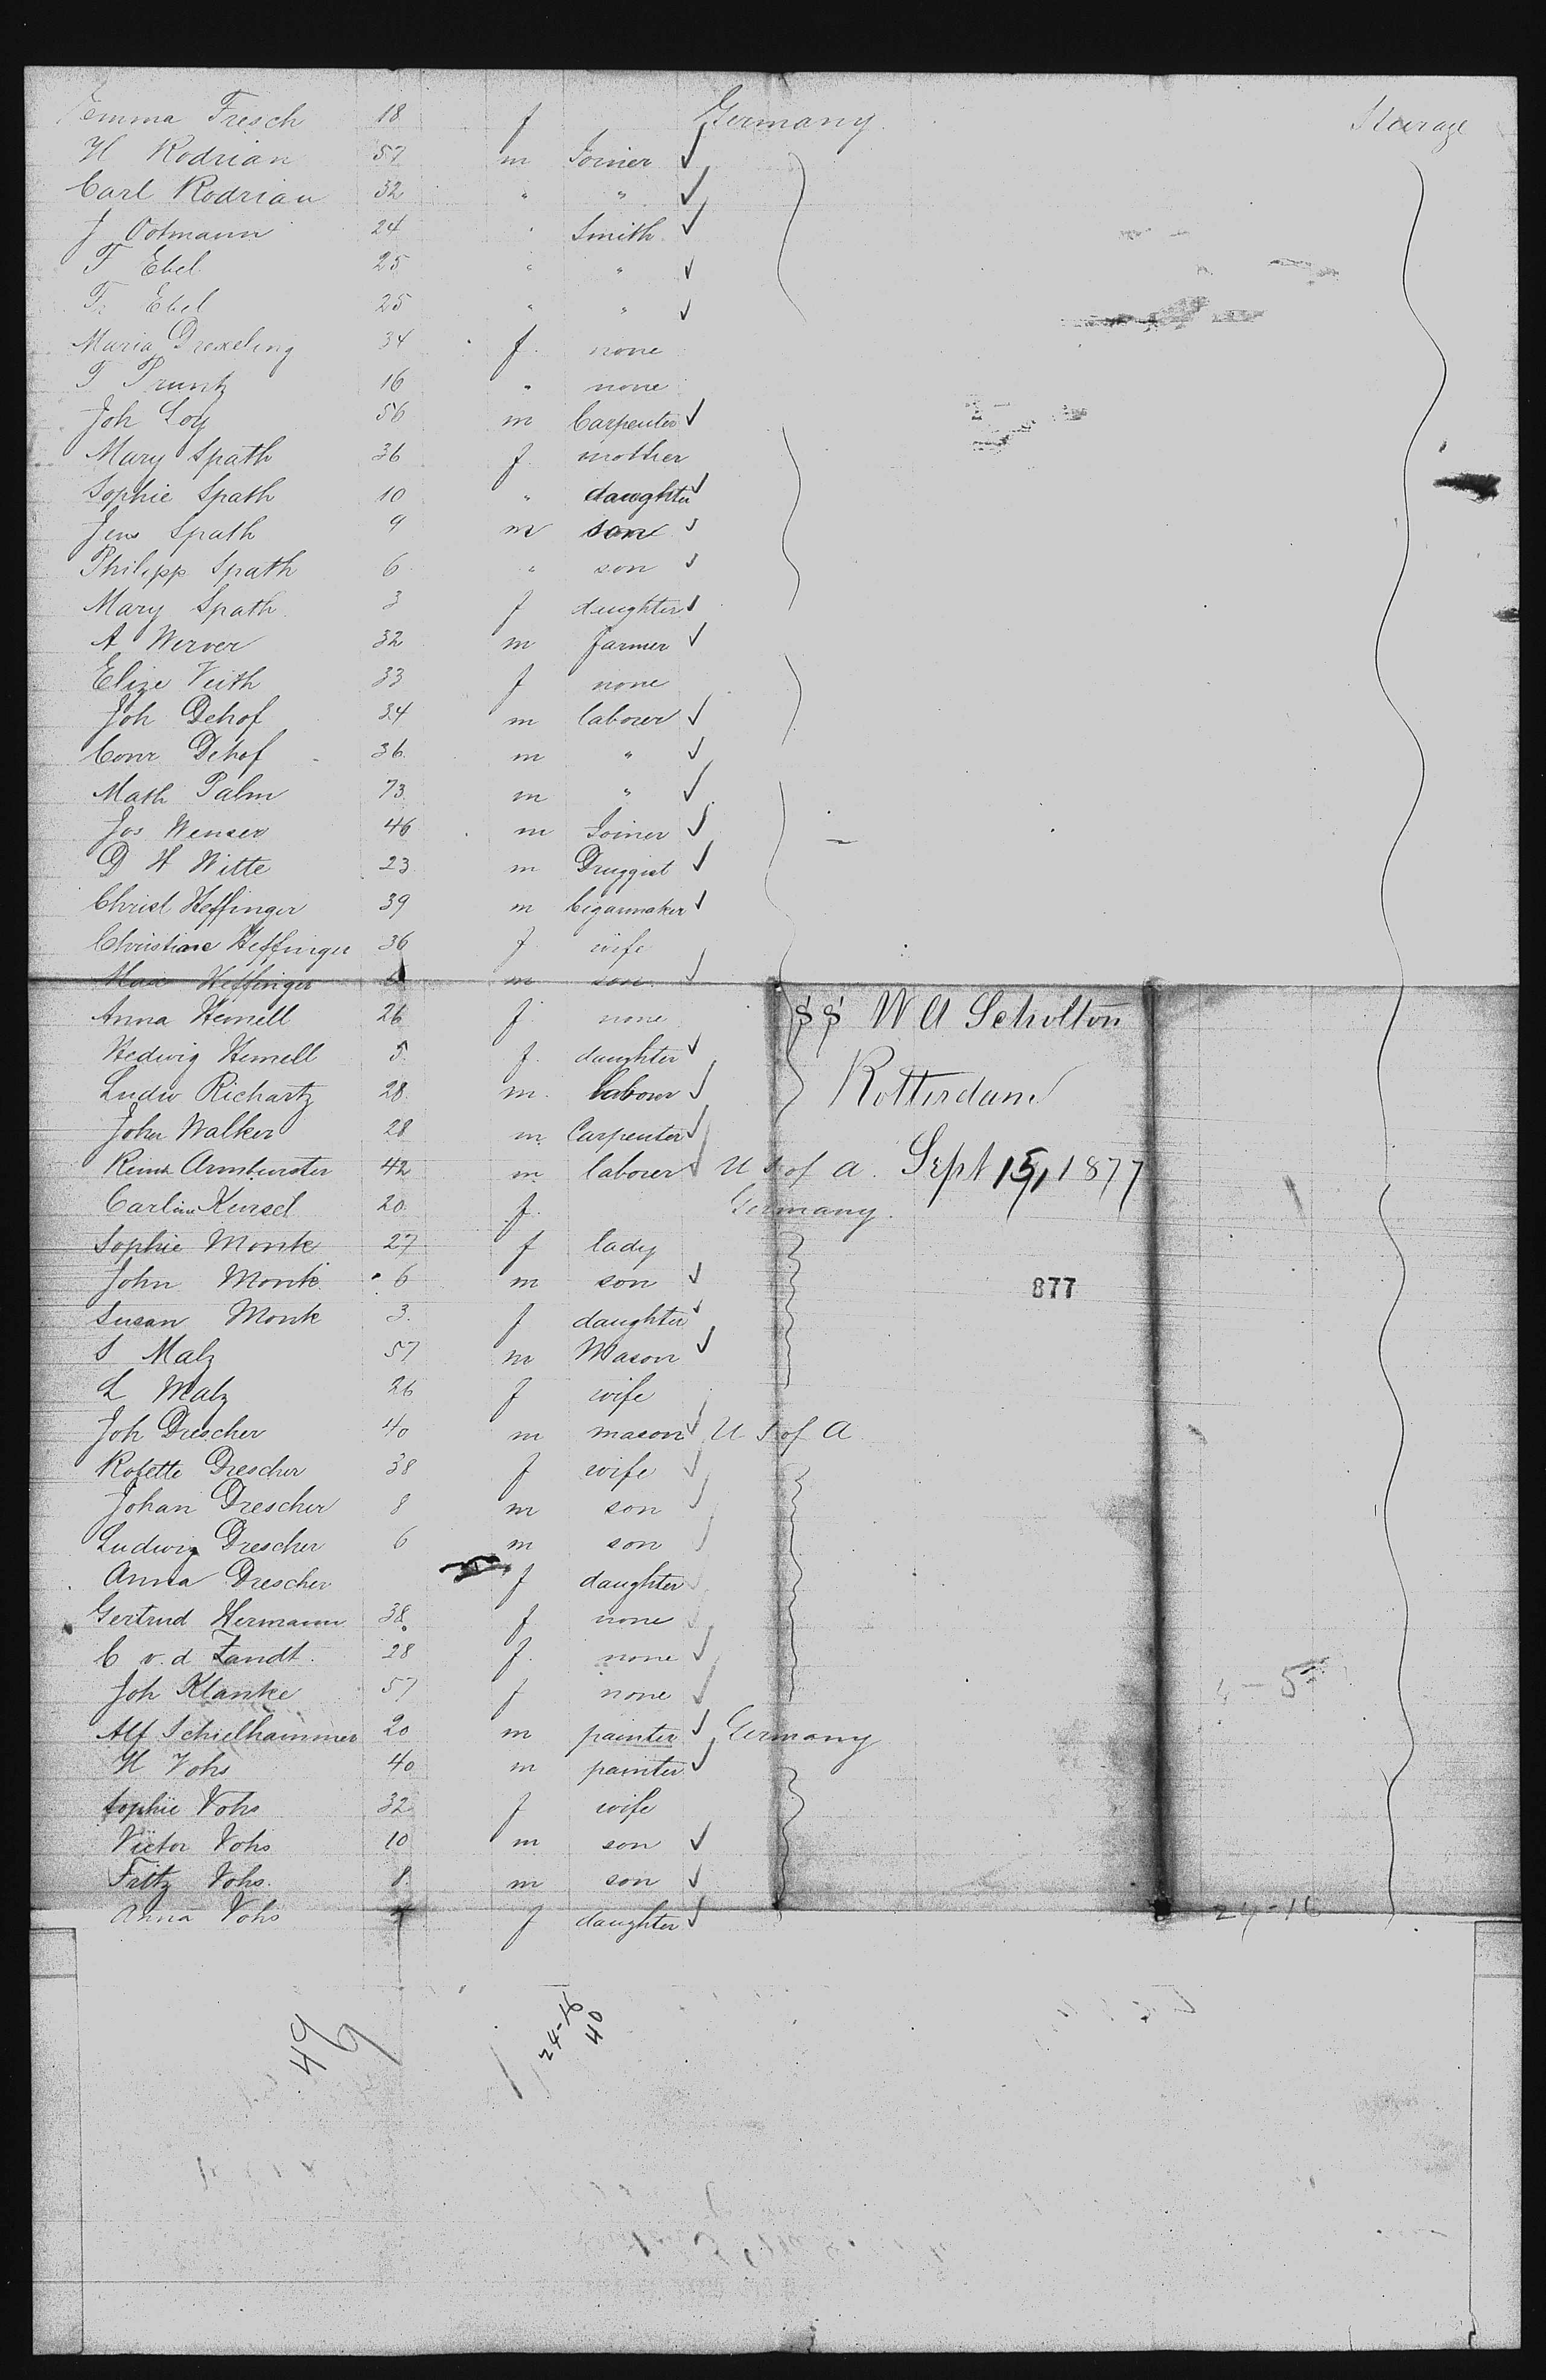 Emma Fresch 18 f Germany Steerage
H Rodrian 57 m Joiner
Carl Rodrian 32 " "
J Ootmann 24 " Smith
F Ebel 25 " "
Fr Ebel 25 " "
Maria Drexeling 34 f none
F Pruntz 16 " none
Joh Loy 56 m Carpenter
Mary Spath 36 f mother
Sophie Spath 10 " daughter
Jens Spath 9 m son
Philipp Spath 6 " son
Mary Spath 3 f daughter
A Werver 32 m farmer
Elize Veith 33 f none
Joh Dehof 34 m laborer
Conr Dehof 36 m "
Math Palm 73 m "
Jos Wenser 46 m Joiner
D H Witte 23 m Druggist
Christ Heffinger 39 m Cigarmaker
Christiane Heffinger 36 f wife
Max Heffinger m son
Anna Hemell 26 f none
SS W A Scholten
Hedwig Hemell 5 f daughter
Ludw Richartz 28 m labour
Rotterdam
John Walker 28 m Carpenter
Armbruster 42 m laborer U S of A. Sept 15, 1877
Carline 20 f. Germany.
Sophie Monk 27 f lady
John Monk 6 m son
877
Susan Monk 3. f daughter
S Malz 57 m Mason
L Malz 26 f wife
Joh Drescher 40 m mason U S of A
Rosette Drescher 38 f wife
Johan Drescher 8 m son
Ludwig Drescher 6 m son
Anna Drescher f daughter
Gertrud Hermann 38 f none
C v. d Zandt. 28 f. none
Joh Klanke 57 f none
Alf Schielhammer 20 m painter Germany
H Vohs 40 m painter
Sophie Vohs 32 f wife
Victor Vohs 10 m son
Fritz Vohs. 8. m son
Anna Vohs f daughter
24-16
49
24-16
40